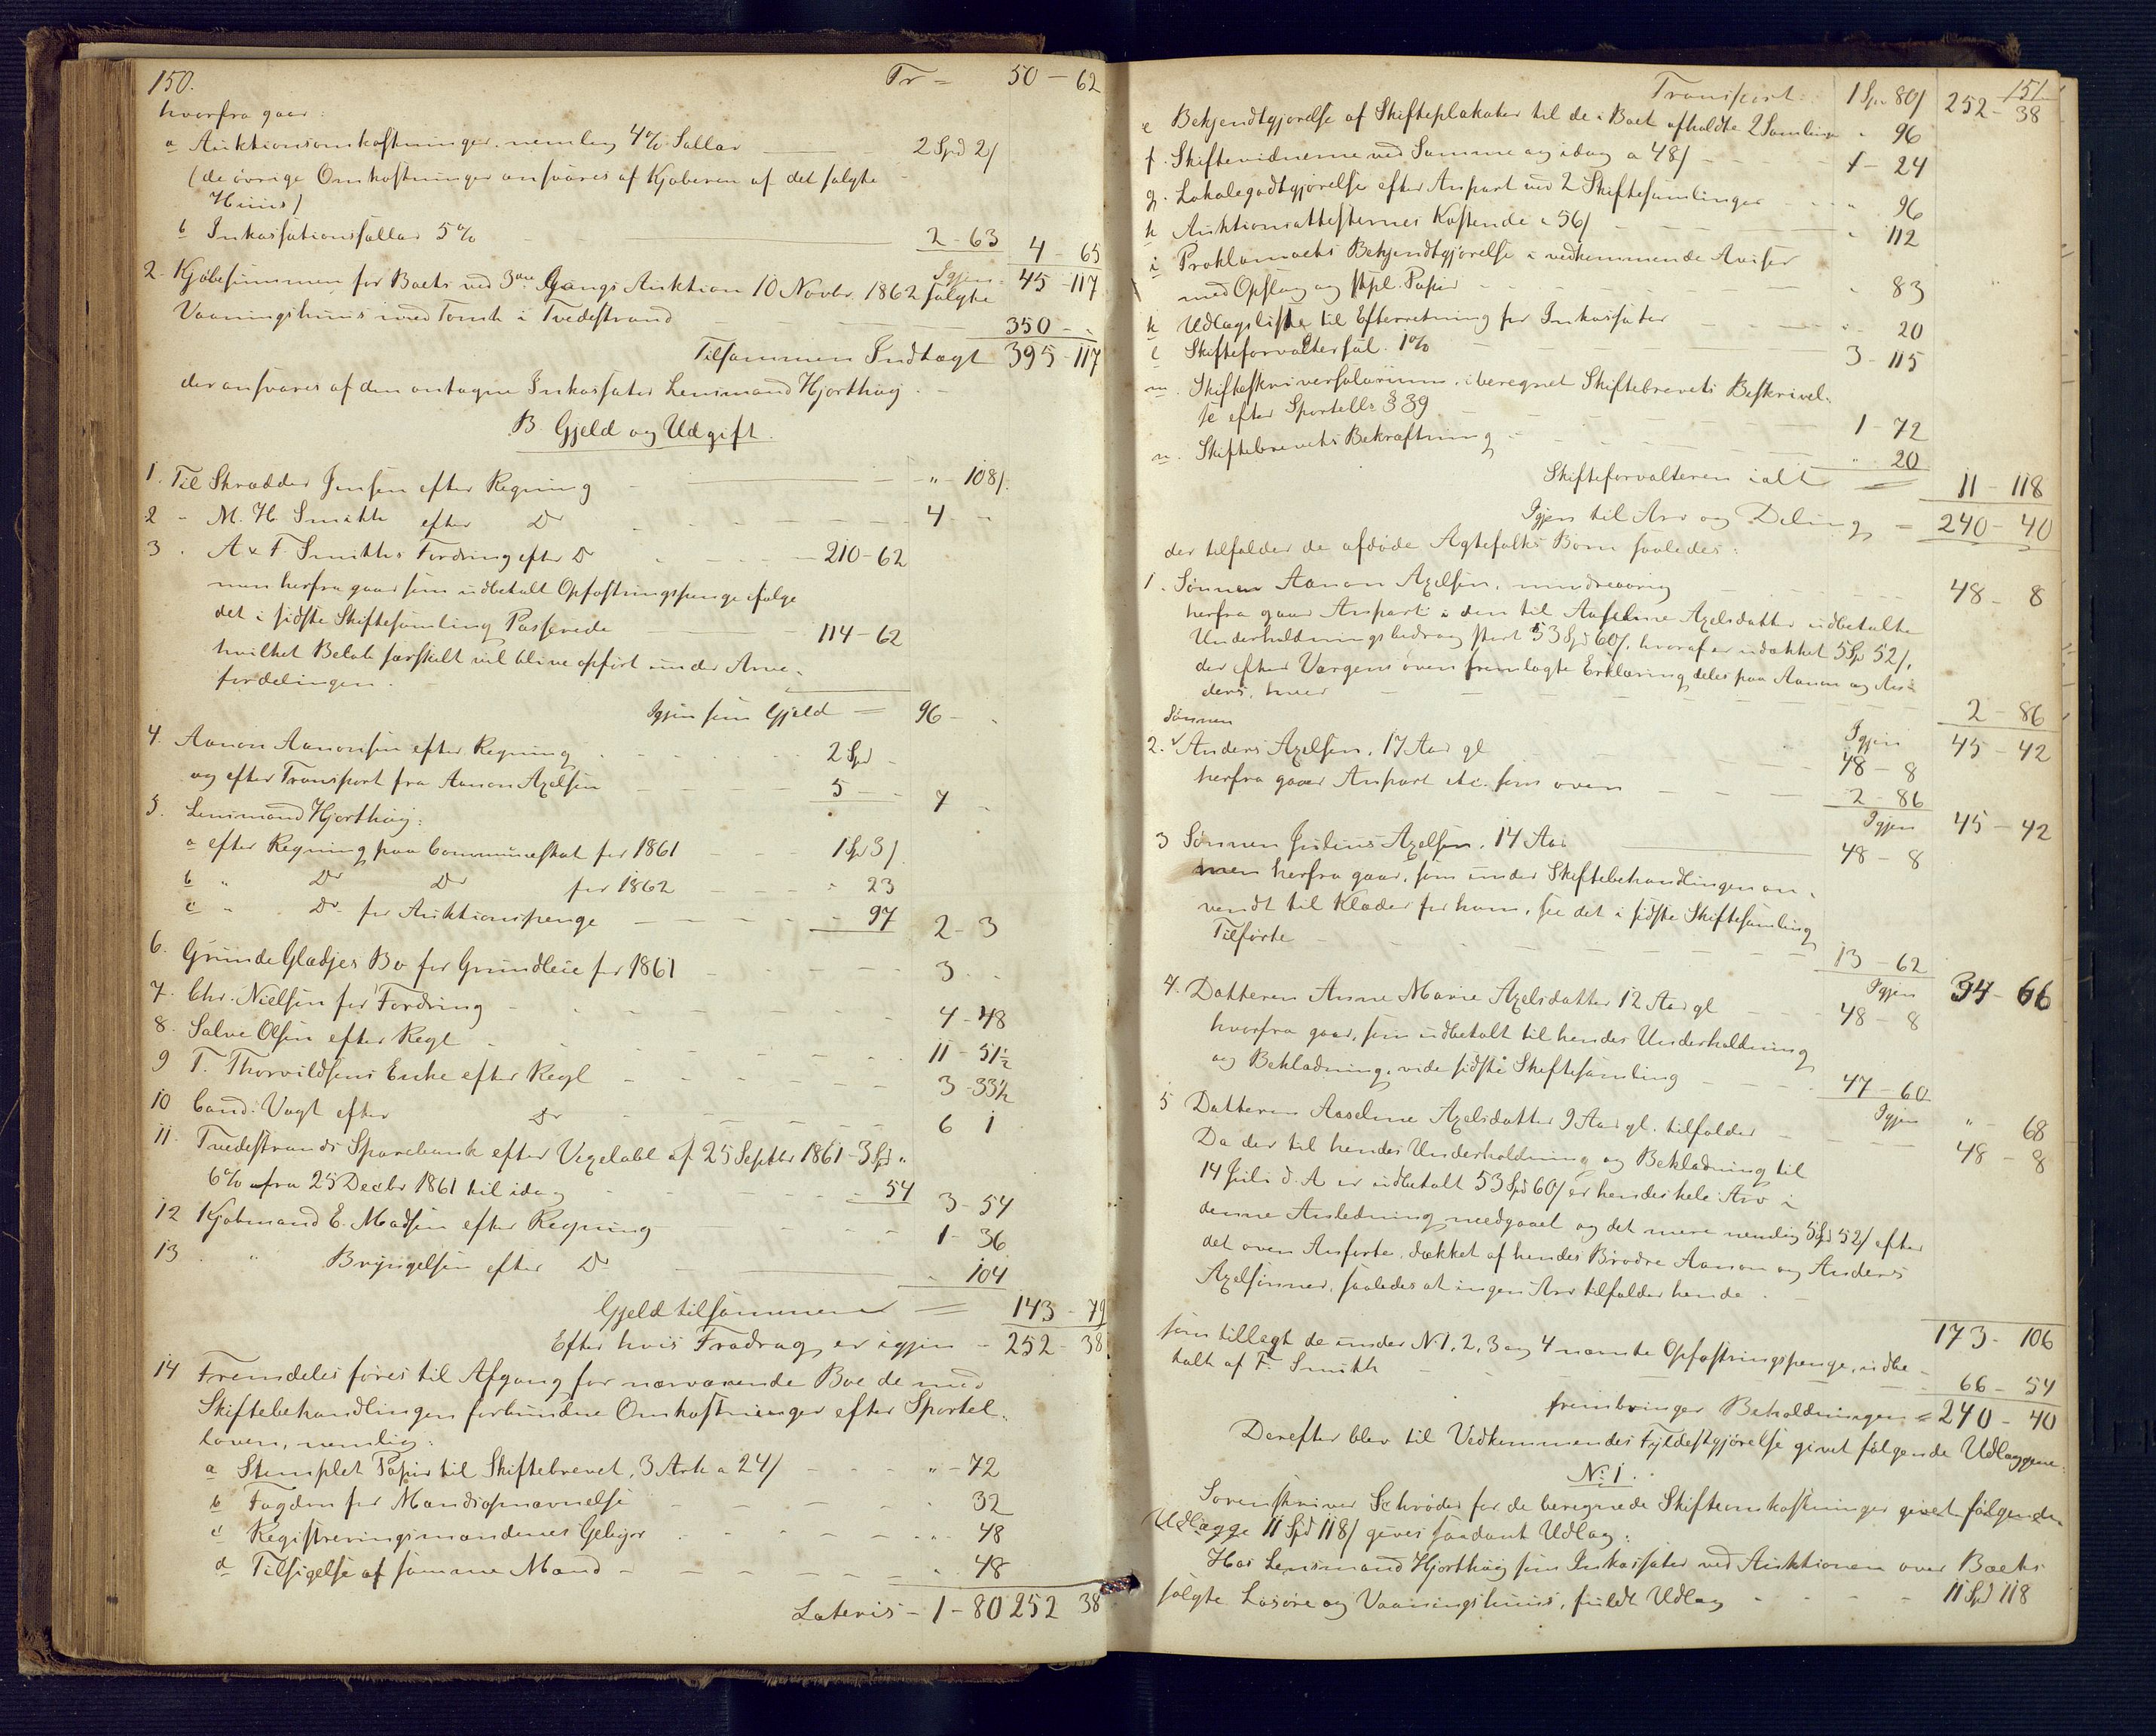 150. Tr = 50 - 62
hvorfra gaar:
a Auktionsomkostninger, nemlig 4% Sallar — 2 Spd 2/
(de övrige Omkostninger ansvares af Kjøberen af det solgte
Huus/
b Inkassationssallar 5% — 2 - 63 4 - 65
Igjen. 45 - 117
2. Kjøbesummen for Boets ved 3die Gangs Auktion 10 Novbr. 1862 solgte
Vaaningshuus med Tomt i Tvedestrand — 350 - "
Tilsammen Indtægt 395 - 117
der ansvares af den antagne Inkassator Lensmand Hjorthaug.
B. Gjeld og Udgift.
1. Til Skrædder Jensen efter Regning — " - 108/.
2 - M. H. Smith efter Do — 4 - "
3 . A & F. Smiths Fordring efter Do — 210 - 62
men herfra gaar som udbetalt Opfostringspenge ifølge
det i sidste Skiftesamling Passerede — 114 - 62
hvilket Beløb særskilt vil blive opført under Arve-
fordelingen.
Igjen som Gjeld — 96 - "
4. Aanon Aanonsen efter Regning — 2 Spd
og efter Transport fra Aanon Axelsen — 5 — 7 -
5. Lensmand Hjorthaug:
a efter Regning paa Communeskat for 1861 — 1 Spd 3/.
b " Do Do for 1862 — " 23
c " Do for Auktionspenge — " 97 2 - 3
6. Grunde Glædjes Bo for Grundleie for 1861 — 3 . "
7. Chr. Nielsen for Fordring — 4 - 48
8. Salve Olsen efter Regl — 11 - 51½
9 T. Thorvildsens Enke efter Regl — 3 - 33½
10 Cand: Vogt efter Do — 6 1
11. Tvedestrands Sparebank efter Vexelobl af 25 Septbr 1861 - 3 Spd "
6% fra 25 Decbr 1861 til idag — 54 3 - 54
12 Kjøbmand E. Madsen efter Regning — 1 - 36
13 . " Bryngelsen efter Do — " 104
Gjeld tilsammen = 143 - 79
Efter hvis Fradrag er igjen - 252 - 38
14 Fremdeles føres til Afgang for nærværende Boe de med
Skiftebehandlingen forbundne Omkostninger efter Sportel-
loven, nemlig:
a Stemplet Papir til Skiftebrevet, 3 Ark a 24/ — " - 72
b Fogden for Mandsopnævnelse — " 32
c Registreringsmændenes Gebyr — " 48
d Tilsigelse af samme Mænd — " 48
Lateris - 1 - 80 252 38
151
Transport: 1 Spd 80/ 252 - 38
e Bekjendtgjørelse af Skifteplakater til de i Boet afholdte 2 Samlinger " 96
f. Skiftevidnerne ved Samme og idag a 48/ — 1 - 24
g. Lokalegodtgjørelse efter Anpart ved 2 Skiftesamlinger — " 96
h Auktionsattesternes Kostende a 56/ — " 112
i Proklamaets Bekjendtgjørelse i vedkommende Aviser
med Opslag og stpl. Papir — " 83
k Udlagsliste til Efterretning for Inkassator — " 20
l Skifteforvaltersal. 1% — 3 - 115
m. Skifteskriversalarium, iberegnet Skiftebrevets Beskrivel-
se efter Sportell: § 39 — 1 - 72
n. Skiftebrevets Bekræftning — " 20
Skifteforvalteren ialt — 11 - 118
Igjen til Arv og Deling = 240 - 40
der tilfalder de afdøde Ægtefolks Børn saaledes:
1. Sønnen Aanon Axelsen, mindreaarig — 48 - 8
herfra gaar Anpart i den til Aaseline Axelsdatter udbetalte
Underholdningsbidrag stort 53 Spd 60/, hvoraf er udækket 5 Spd 52/,
der efter Værgens oven fremlagte Erklæring deles paa Aanon og An-
ders, hver — 2 - 86
Igjen 45 - 42
Sønnen
2. Anders Axelsen, 17 Aar gl — 48 - 8
herfra gaar Anpart etc. som oven — 2 - 86
Igjen 45 - 42
3 Sønnen Julius Axelsen, 14 Aar — 48 - 8
men herfra gaar, som under Skiftebehandlingen an-
vendt til Klæder for ham, see det i sidste Skiftesamling
Tilførte — 13 - 62
Igjen 34 - 66
4. Datteren Anne Marie Axelsdatter 12 Aar gl — 48 - 8
hvorfra gaar, som udbetalt til hendes Underholdning
og Beklædning, vide sidste Skiftesamling — 47 - 60
Igjen " - 68
5 Datteren Aaseline Axelsdatter 9 Aar gl. tilfalder — 48 - 8
Da der til hendes Underholdning og Beklædning til
14 Juli d. A. er udbetalt 53 Spd 60/ er hendes hele Arv i
denne Anledning medgaaet og det mere nemlig 5 Spd 52/ efter
det oven Anførte, dækket af hendes Brødre Aanon og Anders
Axelsønner, saaledes at ingen Arv tilfalder hende.
173 - 106
som tillagt de under N. 1, 2, 3 og 4 nævnte Opfostringspenge, udbe-
talt af F. Smith — 66 - 54
frembringer Beholdningen = 240 - 40
Derefter blev til Vedkommendes Fyldestgjørelse givet følgende Udlæggene:
No 1.
Sorenskriver Schrøder for de beregnede Skifteomkostninger givet følgende
Udlægge 11 Spd 118/ gives saadant Udlæg:
Hos Lensmand Hjorthaug som Inkassator ved Auktionen over Boets
solgte Løsøre og Vaaningshuus, fuldt Udlæg — 11 Spd 118